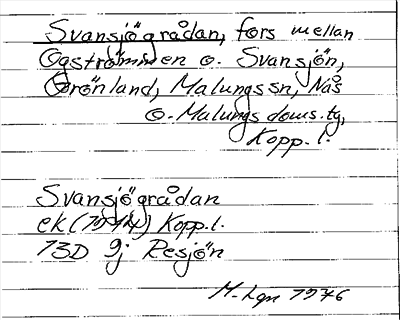 Svansjögrådan, fors mellan
Ogströmmen o. Svansjön,
Grönland, Malungs sn, Nås
o. Malungs doms.tg,
Kopp. l.
Svansjögrådan
ek (1974) Kopp.l.
13D 9j Resjön
M-Lgn 1976